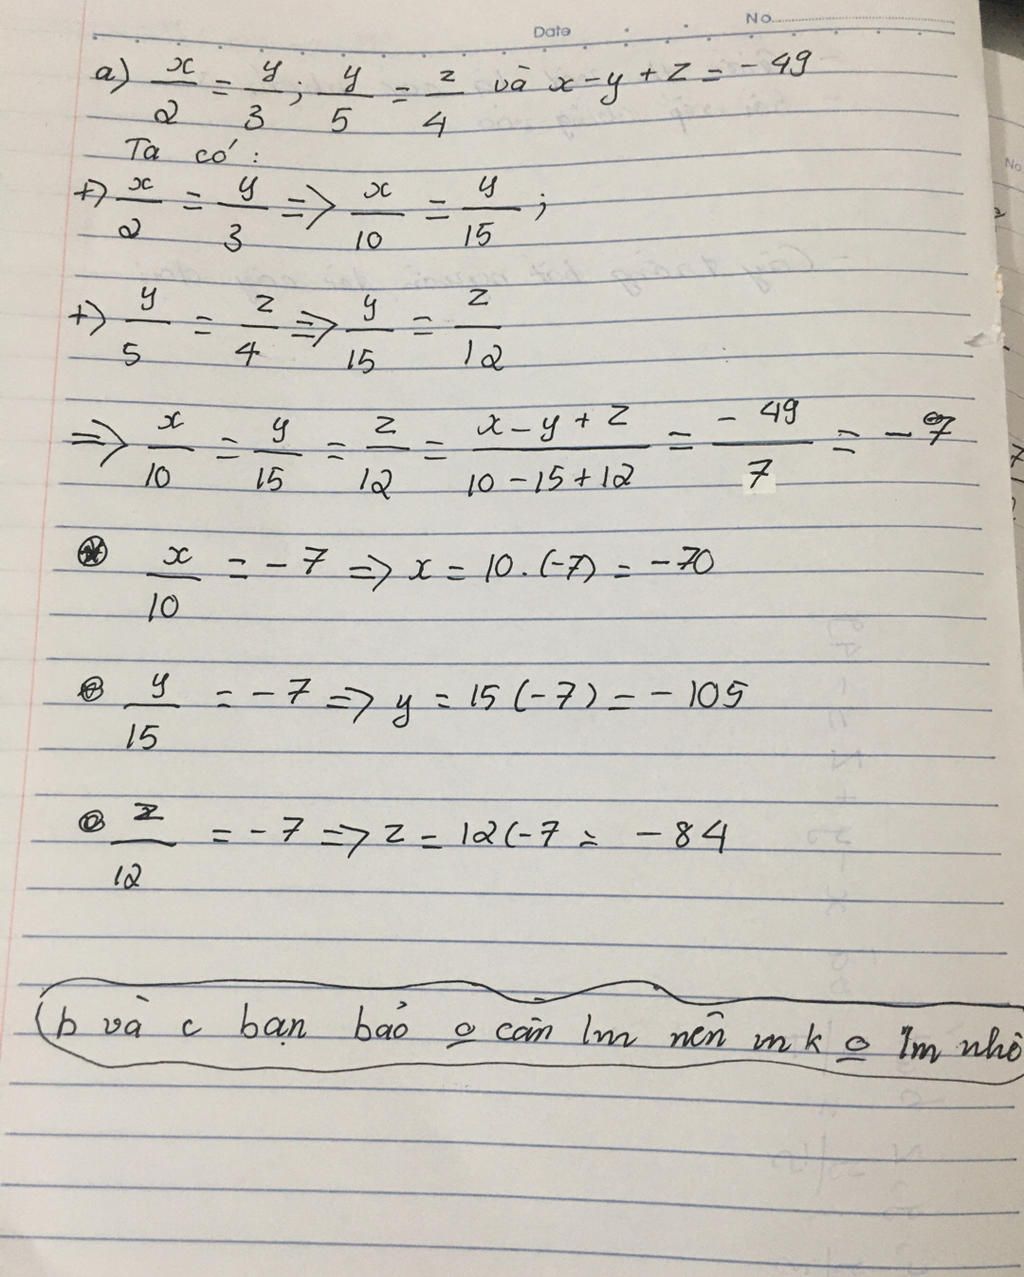 Date No.
a) x/2 = y/3 ; y/5 = z/4 và x - y + z = - 49
Ta có :
+) x/2 = y/3 => x/10 = y/15 ;
+) y/5 = z/4 => y/15 = z/12
=> x/10 = y/15 = z/12 = x - y + z / 10 - 15 + 12 = - 49 / 7 = - 7
x/10 = - 7 => x = 10 . (-7) = - 70
y/15 = - 7 => y = 15 (-7) = - 105
z/12 = - 7 => z = 12 (-7 = - 84
(b và c bạn bảo o cần lm nên mk o lm nhô
No